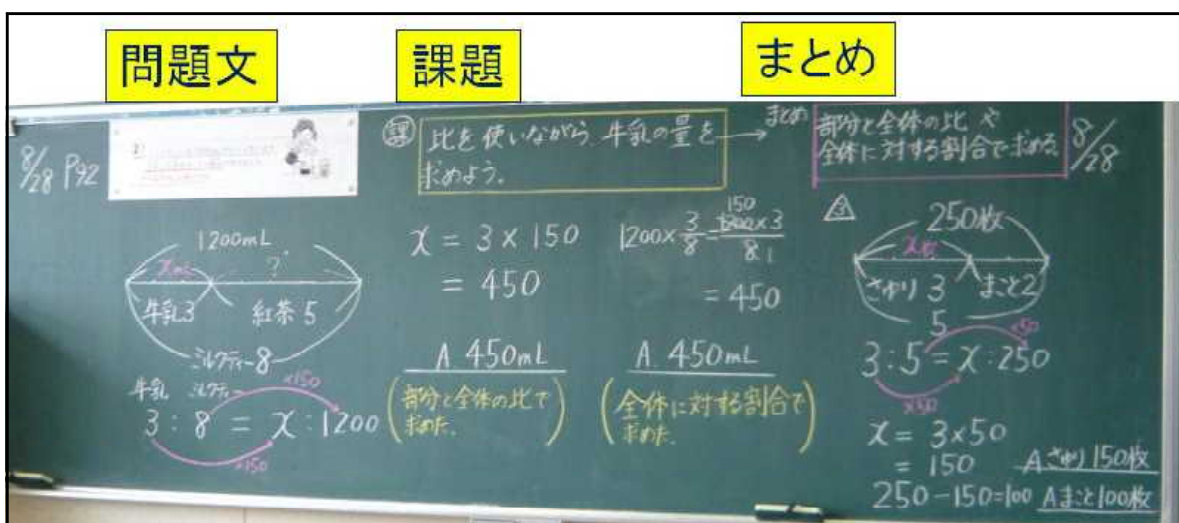 問題文
課題
まとめ
8/28 P92
1200mL
?
牛乳3
紅茶5
ミルクティー8
牛乳 ミルクティ
×150
3:8=x:1200
×150
課
比を使いながら、牛乳の量を
求めよう。
x=3×150
=450
A 450mL
(部分と全体の比で
求めた。)
150
1200×3/8=1200×3
8 1
=450
A 450mL
(全体に対する割合で
求めた。)
まとめ
部分と全体の比や
全体に対する割合で求める。
8/28
3
250枚
x枚
さゆり3
まこと2
5
×50
3:5=x:250
×50
x=3×50
=150
Aさゆり150枚
250-150=100 Aまこと100枚